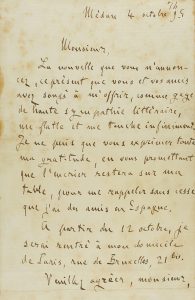 Médan 4 octobre 95
Monsieur,
La nouvelle que vous m'annon-
cez, ce présent que vous et vos amis
avez songé à m'offrir, comme gage
de haute sympathie littéraire,
me flatte et me touche infiniment.
Je ne puis que vous exprimer toute
ma gratitude, en vous promettant
que l'encrier restera sur ma
table, pour me rappeler sans cesse
que j'ai des amis en Espagne.
A partir du 12 octobre, je
serai rentré à mon domicile
de Paris, rue de Bruxelles, 21 bis.
Veuillez agréer, monsieur,